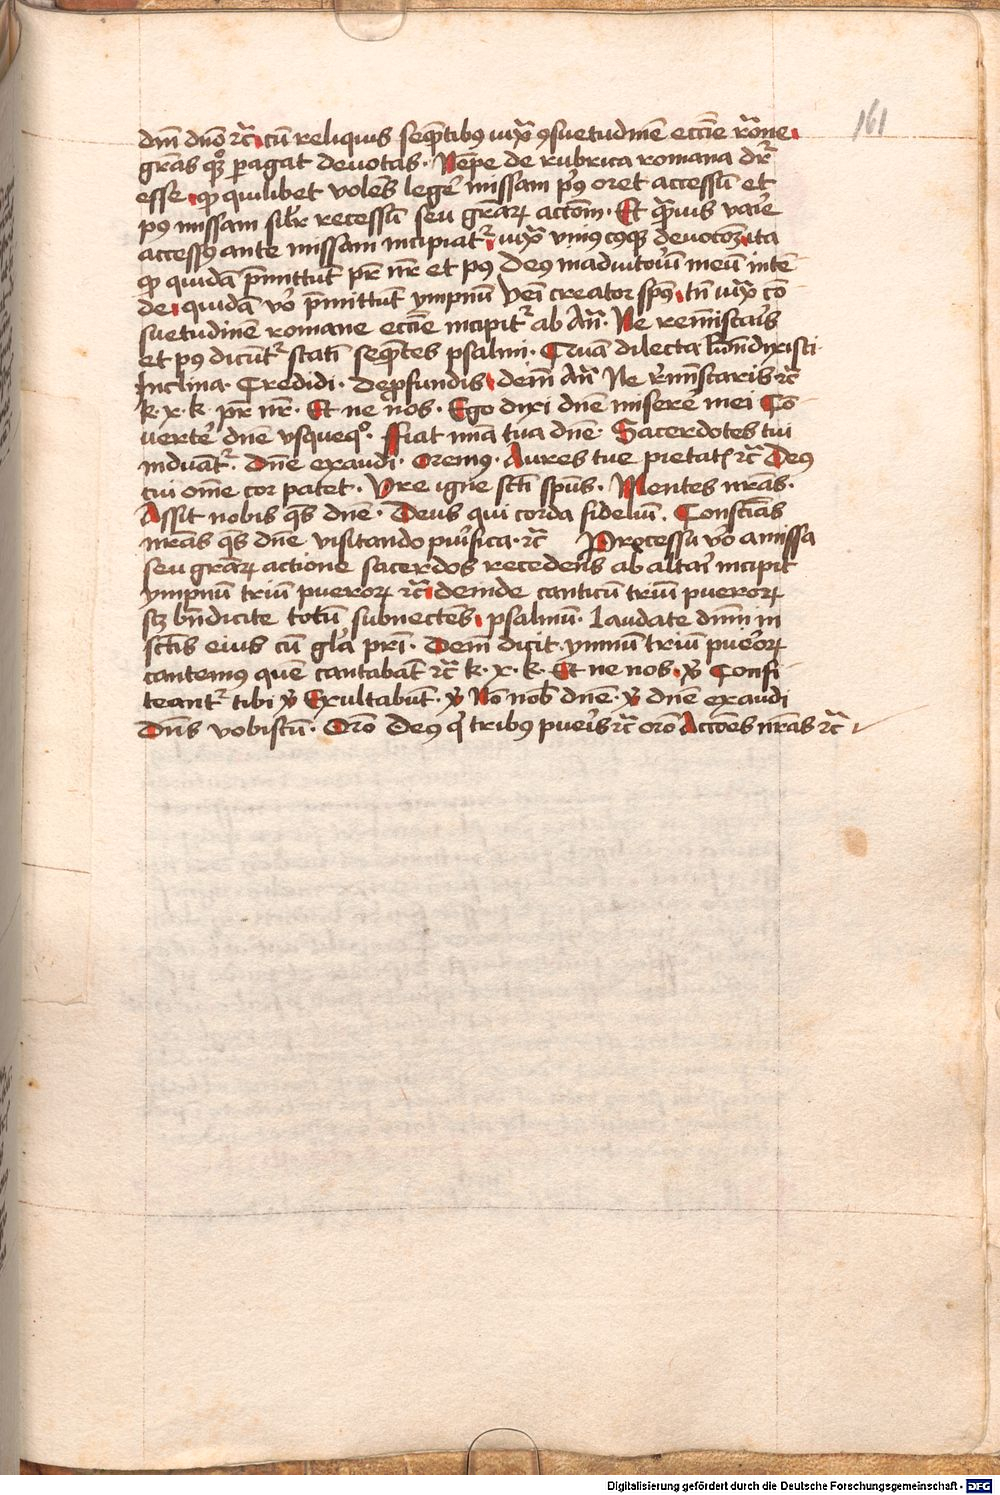 161
dm̄ dnō rc̄ cū reliquis seqn̄tibꝰ iuxᷓ ꝯsuetudinē ecciē rōne
grās qꝫ ꝑagat deuotas · Nēpe de rubrica romana dr̄
esse ꝙ quilibet volēs legē missam pꝰ oret accessū et
pꝰ missam silr recessū seu grāꝝ actōm · Et qᷓuis varie
accessꝰ ante missam incipiatr̄ iuxᷓ vniꝰcꝰqꝫ deuotōꝫ ita
ꝙ quidā p̄mittūt pr̄ nr̄ et pꝰ Deꝰ in adiutoriū meū inten
de quidā vo p̄mittūt ympnū Veni creator sp̄s tn̄ iuxᷓ cō
suetudinē romane ecciē incipitr̄ ab An̄ · Ne reminiscaris
et pꝰ dicūtr̄ statī seqn̄tes psalmi · Quā dilecta Bn̄dixisti
Inclina · Credidi · De ꝓfundis deīn An̄ Ne rm̄nscaris rc̄
k · x · k · pr̄ nr̄ · Et ne nos · Ego dixi dnē miserē mei Cō
uertē dnē vsquequo · Fiat mīa tua dnē · Sacerdotes tui
induātr̄ · Dnē exaudi · Oremꝰ · Aures tue pietatis rc̄ Deꝰ
cui omē cor patet · Vre igne scti spūs · Mentes nrās ·
Assit nobis qs dnē · Deus qui corda fideliū · Consciās
nrās qs dnē visitando purifica · rc̄ Processu vo a missa
seu grāꝝ actione sacerdos recedens ab altari incipit
ympnū triū pueroꝝ rc̄ deinde canticū triū pueroꝝ
sꝫ bn̄dicite totū subnectens psalmū · Laudate dnm̄ in
sctis eius cū gla pri · Dem̄ dicit · ymnū triū pueroꝝ
cantemus quē cantabāt rc̄ k · x · k · Et ne nos · ꝟ Confi
teantr̄ tibi ꝟ Exultabūt · ꝟ Nō nob dnē · ꝟ dnē exaudi
Dns vobiscū · Orō Deꝰ qi tribꝰ pueris rc̄ orō Actōes nrās rc̄
Digitalisierung gefördert durch die Deutsche Forschungsgemeinschaft - DFG